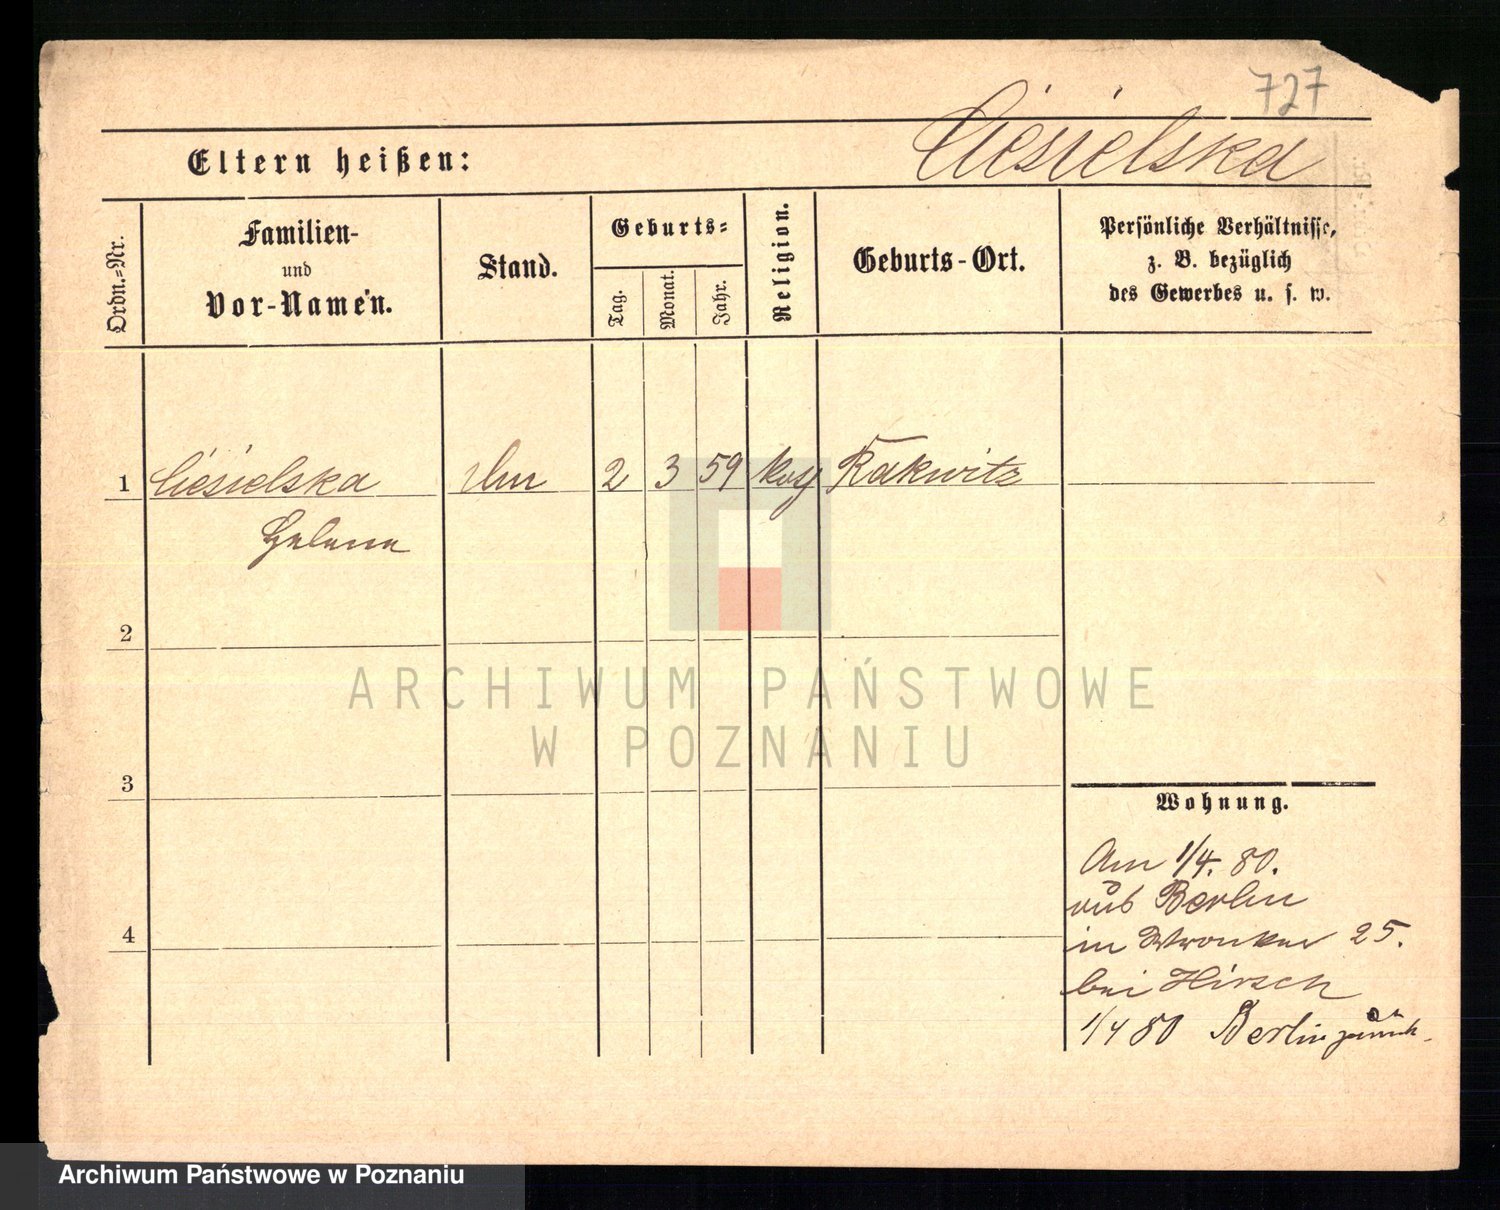 727
Eltern heißen:
Ciesielska
Ordn.=Nr.
Familien-
und
Vor-Namen.
Stand.
Geburts=
Tag.
Monat.
Jahr.
Religion.
Geburts-Ort.
Persönliche Verhältnisse,
z. B. bezüglich
des Gewerbes u. s. w.
1 Ciesielska 2 3 59 Rakwitz
Helene
2
3
4
ARCHIWUM PAŃSTWOWE
W POZNANIU
Wohnung.
Am 1/4. 80.
aus Berlin
in Wronker 25.
bei Hirsch
1/4 80 Berlin zurück.
Archiwum Państwowe w Poznaniu